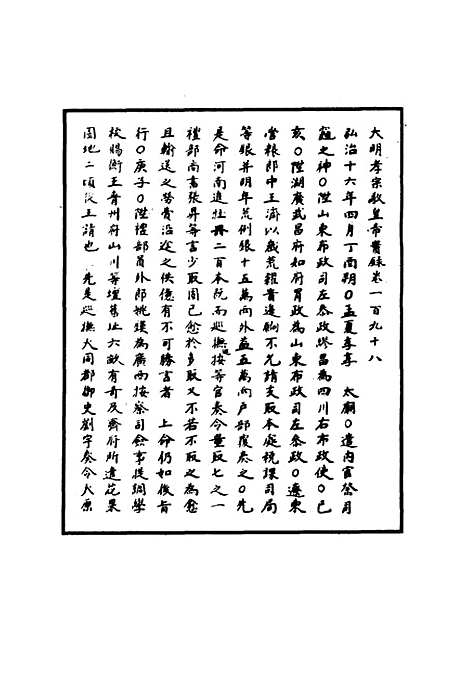 大明孝宗敬皇帝實錄卷一百九十八
弘治十六年四月丁酉朔○孟夏享 太廟○遣內官祭司
竈之神○陞山東布政司左參政繆昌為四川右布政使○己
亥○陞湖廣武昌府知府冒政為山東布政司左參政○遼東
管粮郎中王濟以歲荒糴貴邊餉不充請支取本處稅課司局
等銀并明年荒例銀十五萬兩外益五萬兩户部覆奏之○先
是命河南進牡丹二百本既而巡撫按等官奏今量取七之一
禮部尚書張昇等言少取固已愈於多取又不若不取之為愈
且輸送之勞費沿途之供億有不可勝言者 上命仍如後旨
行○庚子○陞禮部員外郎姚謨為廣西按察司僉事提調學
校賜衡王青州府山川等壇舊址六畝有奇及齊府所遺花果
園地二頃從王請也 先是巡撫大同都御史劉宇奏今大原